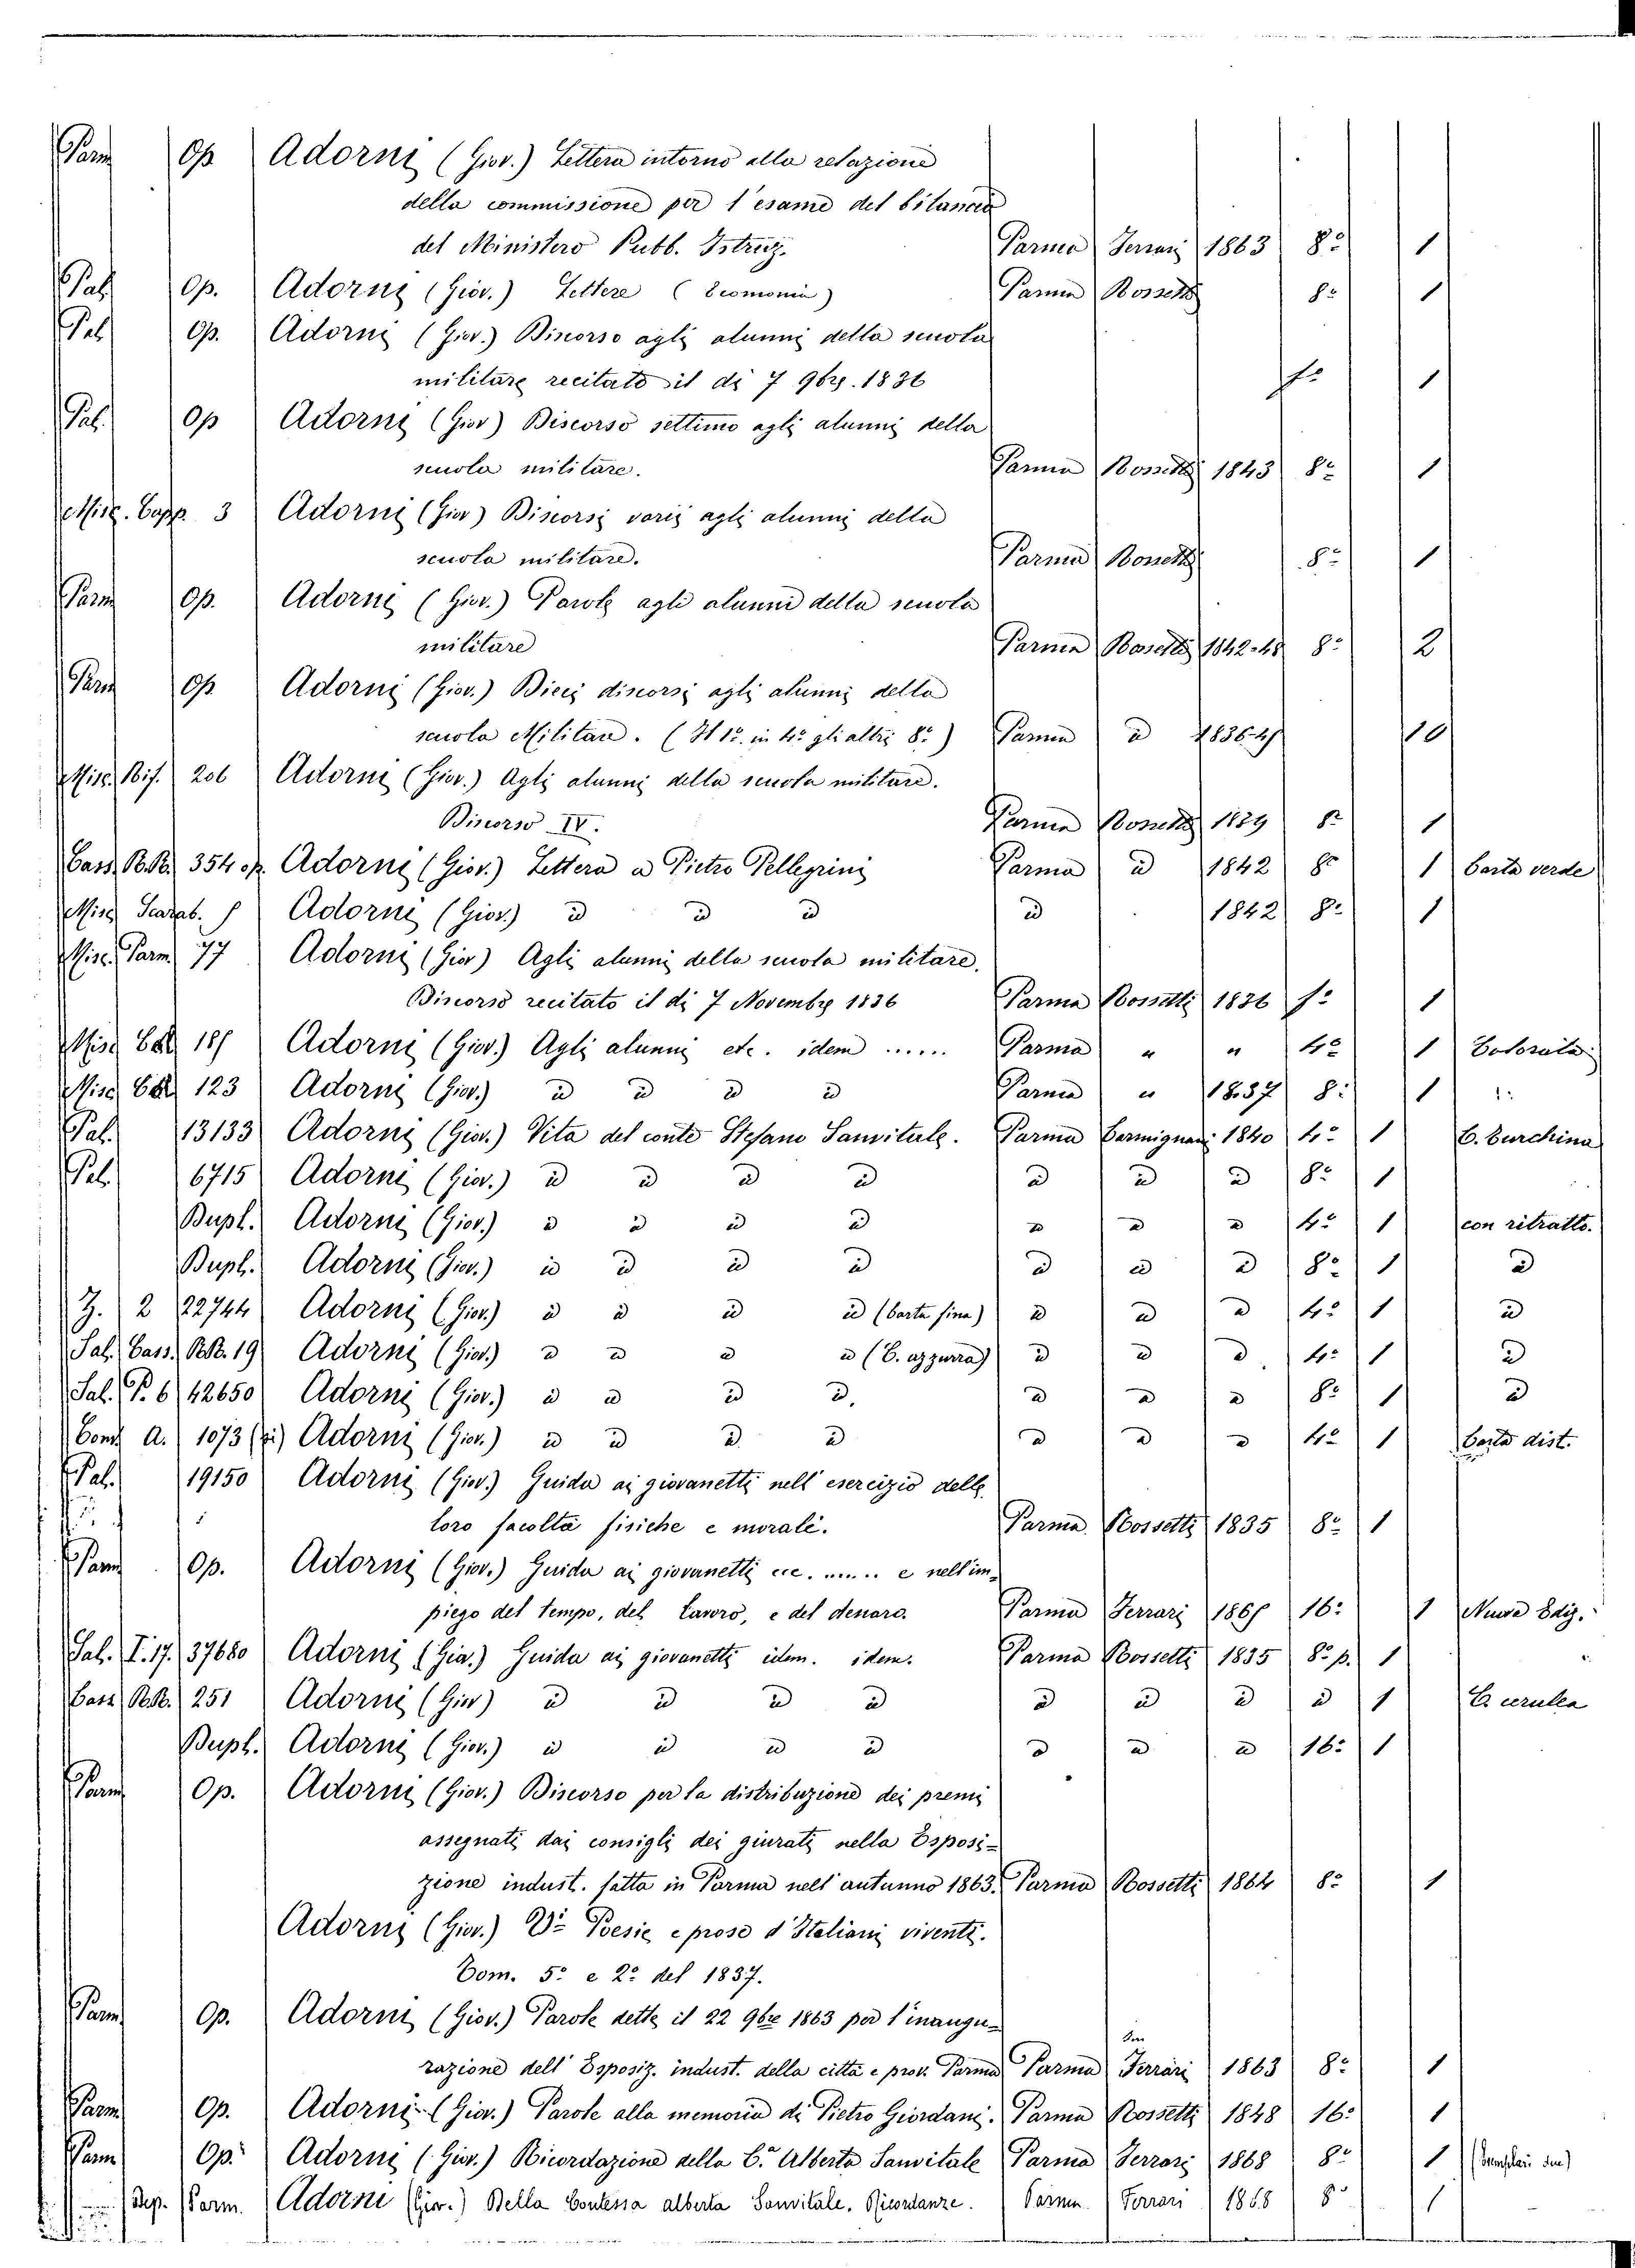 Parm Op Adorni (Giov.) Lettera intorno alla relazione
della commissione per l'esame del bilancio
del Ministero Pubb. Istruz. Parma Ferrari 1863 8º 1
Pal. Op. Adorni (Giov.) Lettere (Economia) Parma Rossetti 8º 1
Pal. Op. Adorni (Giov.) Discorso agli alunni della scuola
militare recitato il dì 7 9bre. 1836 fº 1
Pal. Op Adorni (Giov) Discorso settimo agli alunni della
scuola militare. Parma Rossetti 1843 8º 1
Misc. Capp. 3 Adorni (Giov) Discorsi varii agli alunni della
scuola militare. Parma Rossetti 8º 1
Parm Op. Adorni (Giov.) Parole agli alunni della scuola
militare Parma Rossetti 1842-48 8º 2
Parm Op Adorni (Giov.) Dieci discorsi agli alunni della
scuola Militare. (Il 1º. in 4º gli altri 8º) Parma id 10
Misc. Bif. 206 Adorni (Giov.) Agli alunni della scuola militare.
Discorso IV. Parma Rossetti 1839 8º 1
Cass. BB. 354 op. Adorni (Giov.) Lettera a Pietro Pellegrini Parma id 1842 8º 1 Carta verde
Misc. Scarab. Adorni (Giov.) id id id id 1842 8º 1
Misc. Parm. 77 Adorni (Giov) Agli alunni della scuola militare.
Discorso recitato il dì 7 Novembre 1836 Parma Rossetti 1836 fº 1
Misc. Adorni (Giov.) Agli alunni etc. idem ...... Parma " " 4º 1 Colorata
Misc. 123 Adorni (Giov.) id id id id Parma " 1837 8º 1
Pal. 13133 Adorni (Giov.) Vita del conte Stefano Sanvitale. Parma Carmignani 1840 4º 1 C. turchina
Pal. 6715 Adorni (Giov.) id id id id id id id 8º 1
Dupl. Adorni (Giov.) id id id id id id id 4º 1 con ritratto.
Dupl. Adorni (Giov.) id id id id id id id 8º 1 id
Z. 2 22744 Adorni (Giov.) id id id id (Carta fina) id id id 4º 1 id
Sal. Cass. BB. 19 Adorni (Giov.) id id id id (C. azzurra) id id id 4º 1 id
Sal. P. 6 42650 Adorni (Giov.) id id id id. id id id 8º 1 id
Cons A. 1073 Adorni (Giov.) id id id id id id id 4º 1 Carta dist.
Pal. 19150 Adorni (Giov.) Guida ai giovanetti nell' esercizio delle
loro facoltà fisiche e morali. Parma Rossetti 1835 8º 1
Parm Op. Adorni (Giov.) Guida ai giovanetti ecc. ...... e nell'im-
piego del tempo, del lavoro, e del denaro. Parma Ferrari 16º 1 Nuova Ediz.
Sal. I. 17. 37680 Adorni (Giov.) Guida ai giovanetti idem. idem. Parma Rossetti 1835 8º p. 1
Cass. BB. 251 Adorni (Giov) id id id id id id id id 1 C. cerulea
Dupl. Adorni (Giov.) id id id id id id id 16º 1
Parm Op. Adorni (Giov.) Discorso per la distribuzione dei premi
assegnati dai consigli dei giurati nella Esposi-
zione indust. fatta in Parma nell' autunno 1863. Parma Rossetti 1864 8º 1
Adorni (Giov.) Vº Poesie e prose d'Italiani viventi.
Tom. 5º e 2º del 1837.
Parm Op. Adorni (Giov.) Parole dette il 22 9bre 1863 per l'inaugu-
razione dell' Esposiz. indust. della città e prov. Parma Parma Ferrari 1863 8º 1
Parm Op. Adorni (Giov.) Parole alla memoria di Pietro Giordani. Parma Rossetti 1848 16º 1
Parm Op. Adorni (Giov.) Ricordazione della C.ª Alberta Sanvitale Parma Ferrari 1868 8º 1
Dep. Parm. Adorni (Giov.) Della Contessa alberta Sanvitale. Ricordanze. Parma Ferrari 1868 8º 1